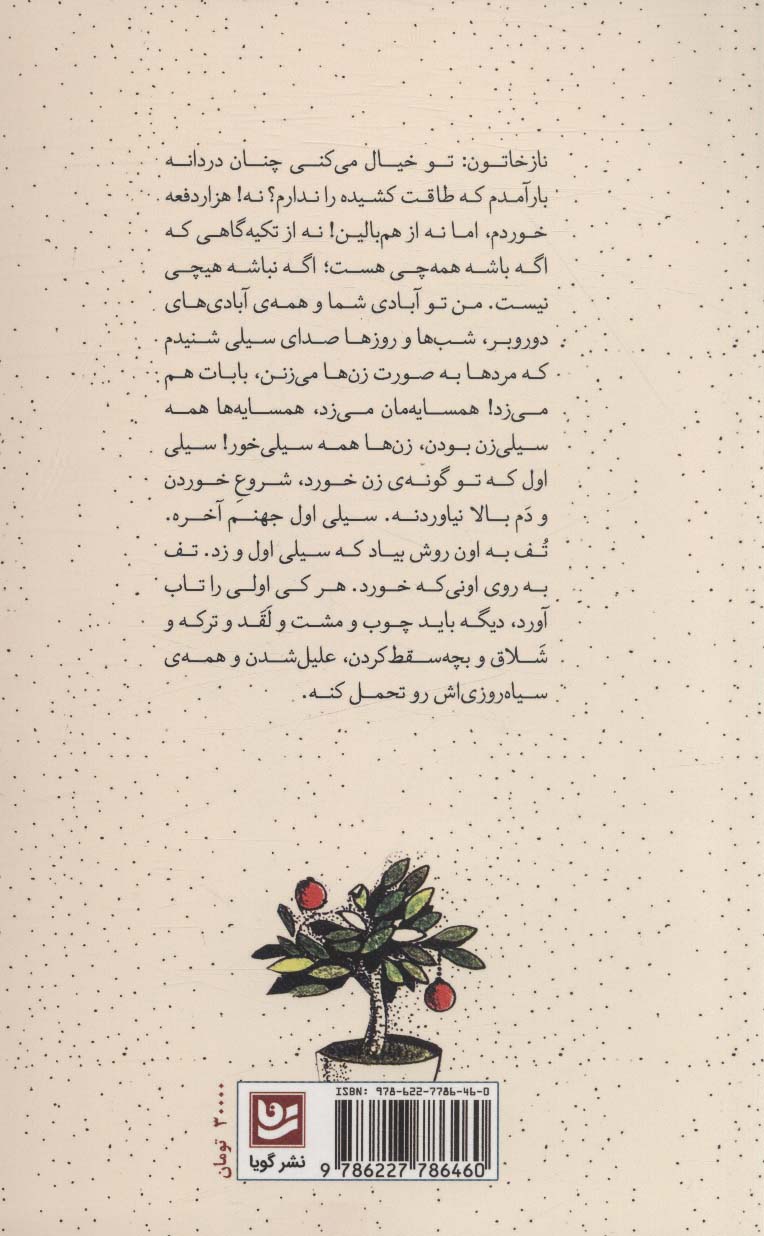 نازخاتون: تو خیال می‌کنی چنان دردانه
بارآمدم که طاقت کشیده را ندارم؟ نه! هزاردفعه
خوردم، اما نه از هم‌بالین! نه از تکیه‌گاهی که
اگه باشه همه‌چی هست؛ اگه نباشه هیچی
نیست. من تو آبادی شما و همه‌ی آبادی‌های
دوروبر، شب‌ها و روزها صدای سیلی شنیدم
که مردها به صورت زن‌ها می‌زنن، بابات هم
می‌زد! همسایه‌مان می‌زد، همسایه‌ها همه
سیلی‌زن بودن، زن‌ها همه سیلی‌خور! سیلی
اول که تو گونه‌ی زن خورد، شروعِ خوردن
و دَم بالا نیاوردنه. سیلی اول جهنم آخره.
تُف به اون روش بیاد که سیلی اول و زد. تف
به روی اونی‌که خورد. هر کی اولی را تاب
آورد، دیگه باید چوب و مشت و لَقَد و ترکه و
شَلاق و بچه‌سقط‌کردن، علیل‌شدن و همه‌ی
سیاه‌روزی‌اش رو تحمل کنه.
ISBN: 978-622-7786-46-0
9 786227 786460
نشر گویا
۳۰۰۰۰ تومان